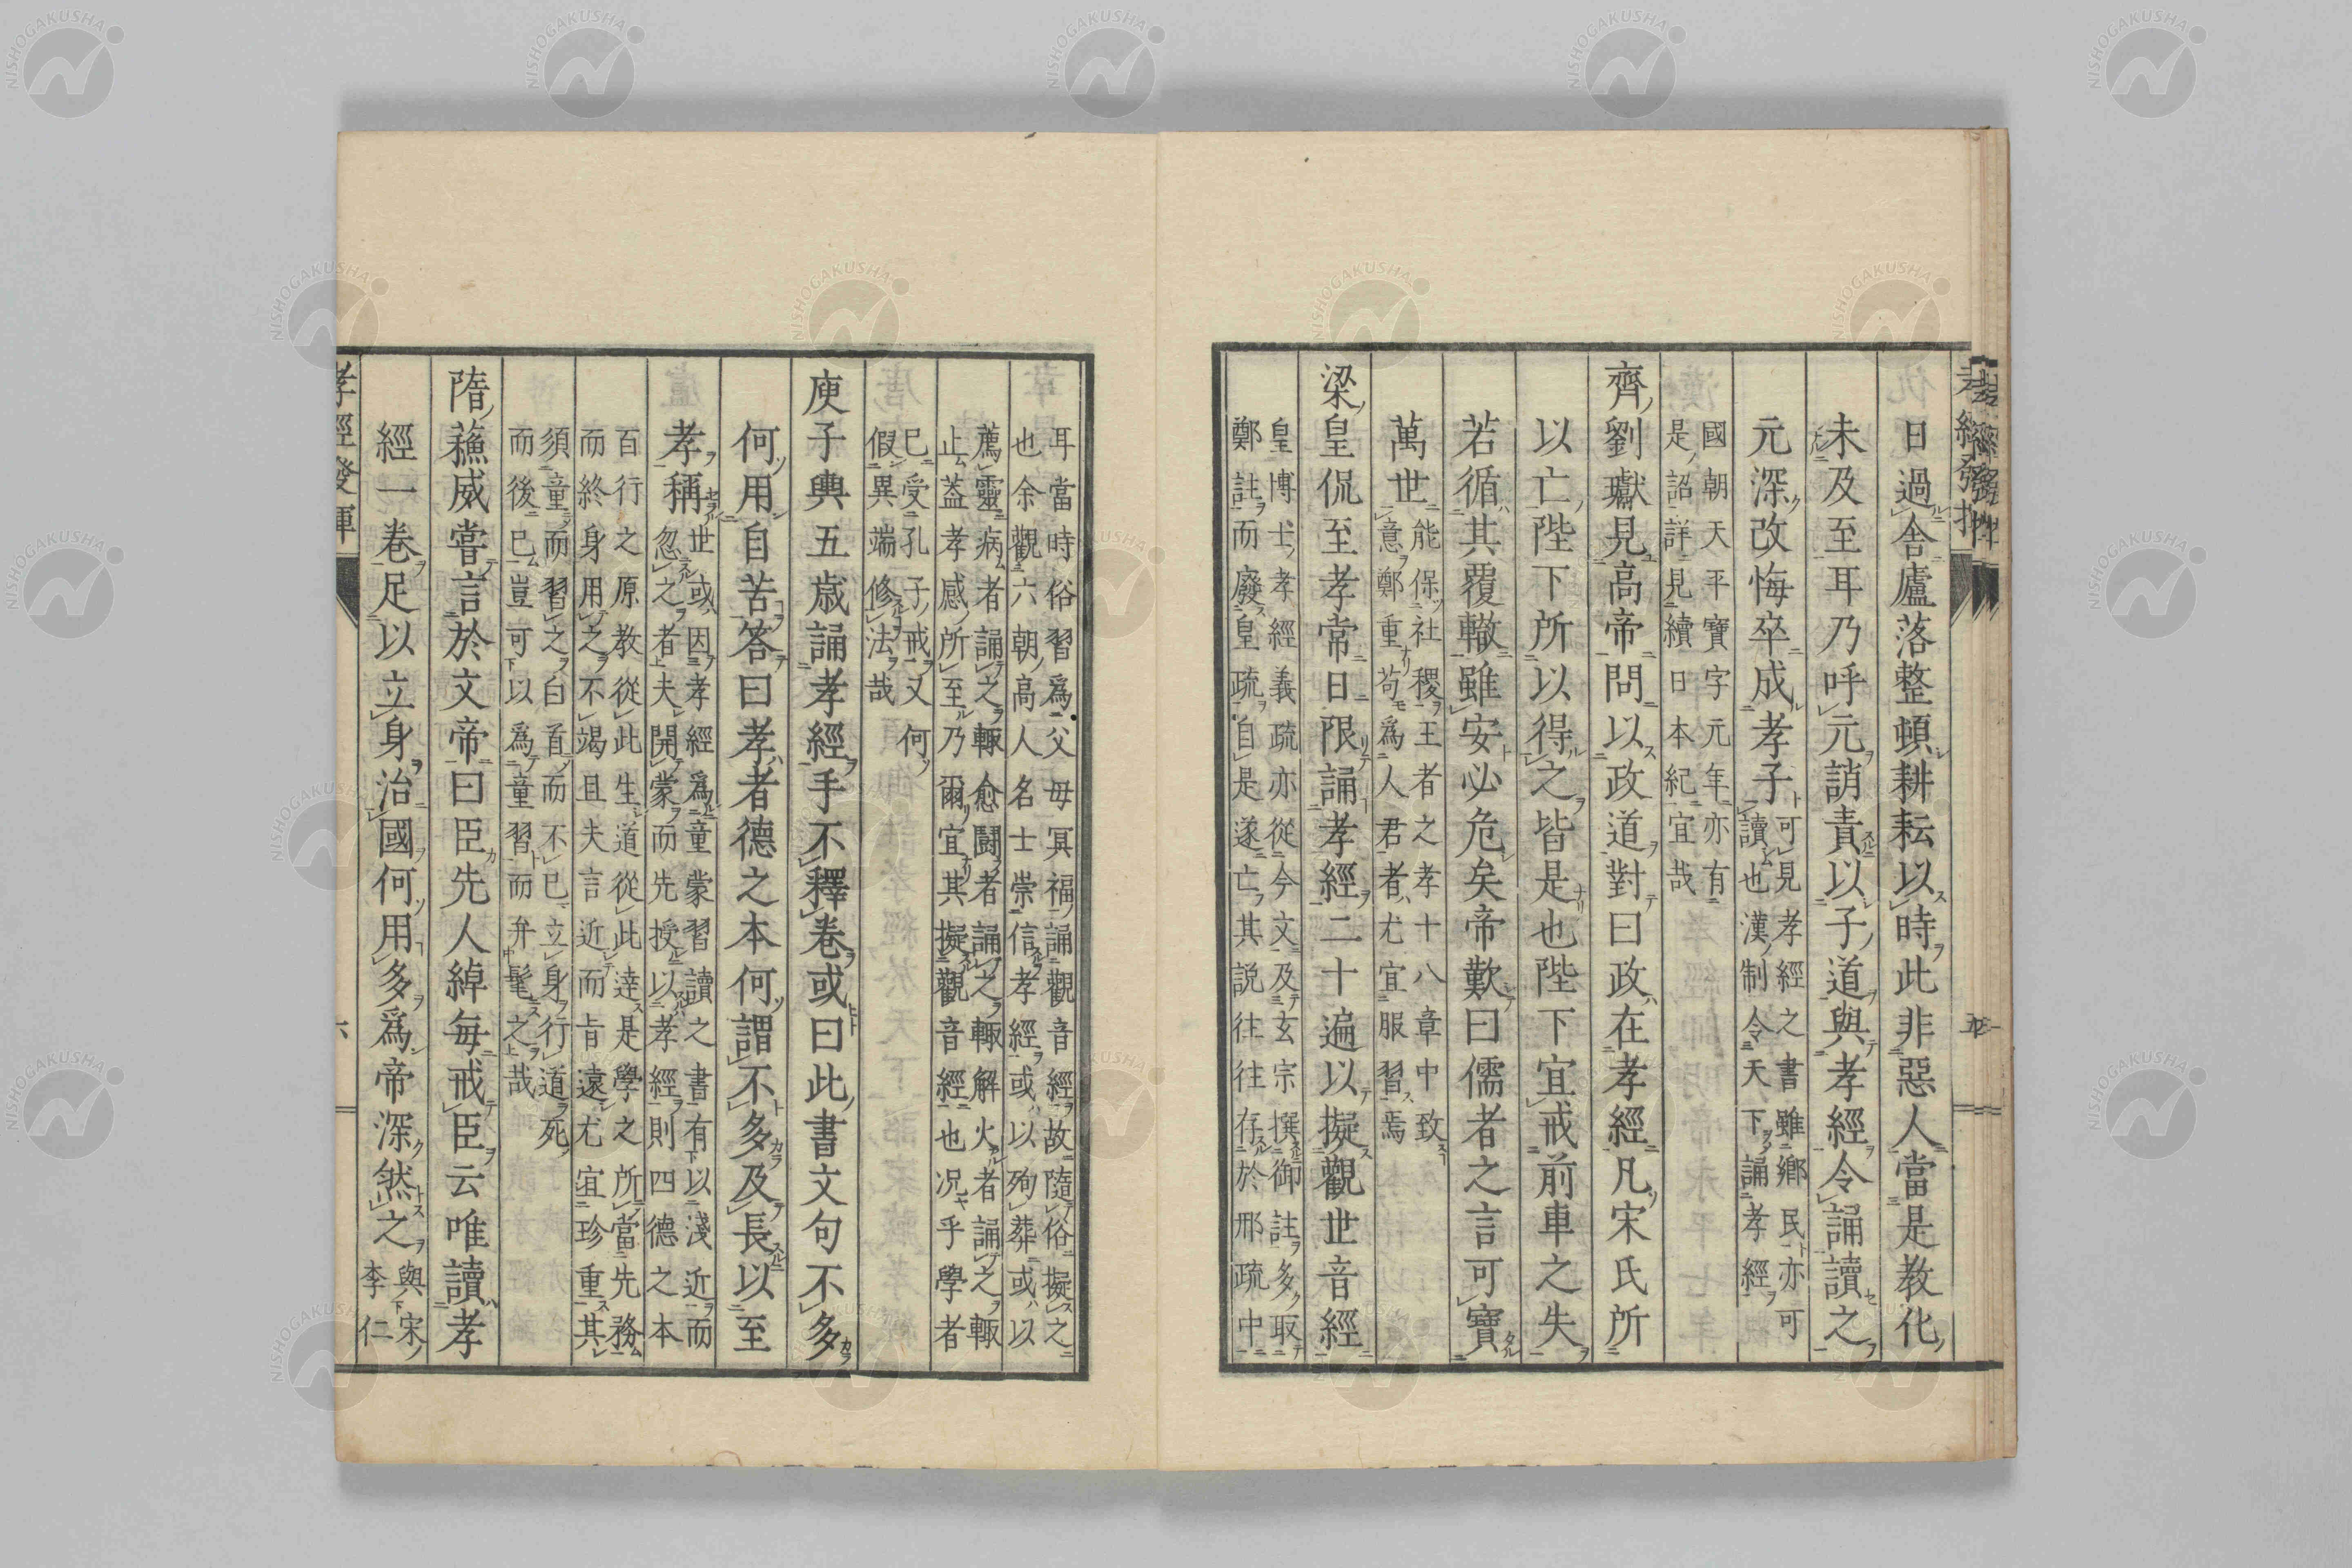 孝經發揮
五
日過舎廬落整頓耕耘以時此非惡人當是教化
未及至耳乃呼元誚責以子道與孝經令誦讀之
元深改悔卒成孝子
可見孝經之書雖鄉民亦可
讀也漢制令天下誦孝經
國朝天平寶字元年亦有
是詔詳見續日本紀宜哉
齊劉瓛見高帝問以政道對曰政在孝經凡宋氏所
以亡陛下所以得之皆是也陛下宜戒前車之失
若循其覆轍雖安必危矣帝歎曰儒者之言可寶
萬世
能保社稷王者之孝十八章中致
意鄭重苟爲人君者尤宜服習焉
梁皇侃至孝常日限誦孝經二十遍以擬觀世音經
皇博士孝經義疏亦從今文及玄宗撰御註多取
鄭註而廢皇疏自是遂亡其説往往存於邢疏中
耳當時俗習爲父母冥福誦觀音經故隨俗擬之
也余觀六朝高人名士崇信孝經或以殉葬或以
薦靈病者誦之輙愈鬪者誦之輙解火者誦之輙
止葢孝感所至乃爾宜其擬觀音經也况乎學者
已受孔子戒又何
假異端修法哉
庾子輿五歳誦孝經手不釋卷或曰此書文句不多
何用自苦答曰孝者德之本何謂不多及長以至
孝稱
世或因孝經爲童蒙習讀之書有以淺近而
忽之者夫開蒙而先授以孝經則四德之本
百行之原教從此生道從此達是學之所當先務
而終身用之不竭且夫言近而旨遠尤宜珍重其
須童而習之白首而不已立身行道死
而後已豈可以爲童習而弁髦之哉
隋蘓威嘗言於文帝曰臣先人綽毎戒臣云唯讀孝
經一卷足以立身治國何用多爲帝深然之
與宋
李仁
孝經發揮
六
NISHOGAKUSHA